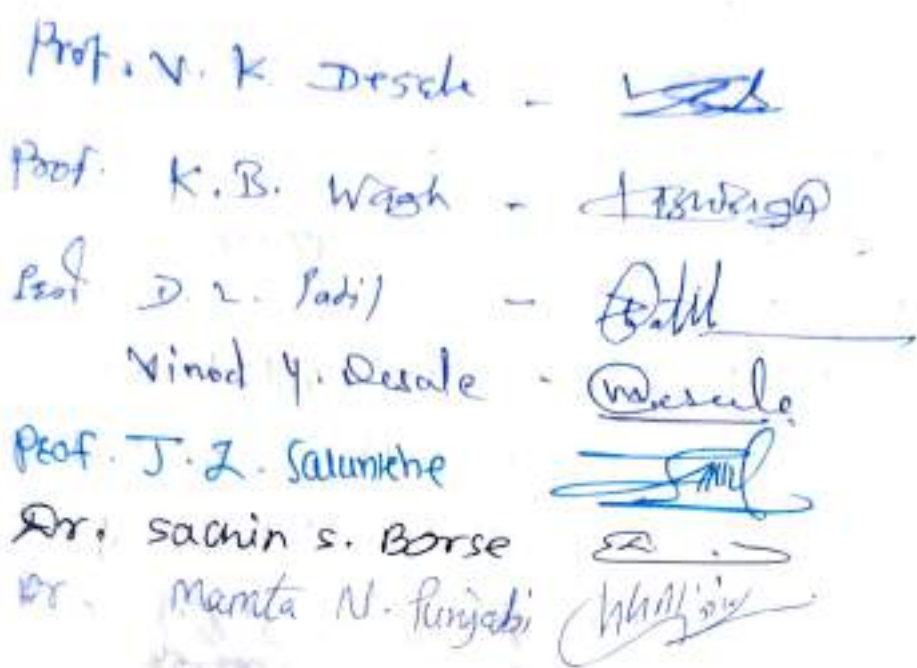 Prof. V. K Desale -
Prof. K.B. Wagh -
Prof D. L. Patil -
Vinod Y. Desale - Desale
Prof. J. Z. Salunkhe
Dr. Sachin S. Borse
Dr. Mamta N. Punjabi